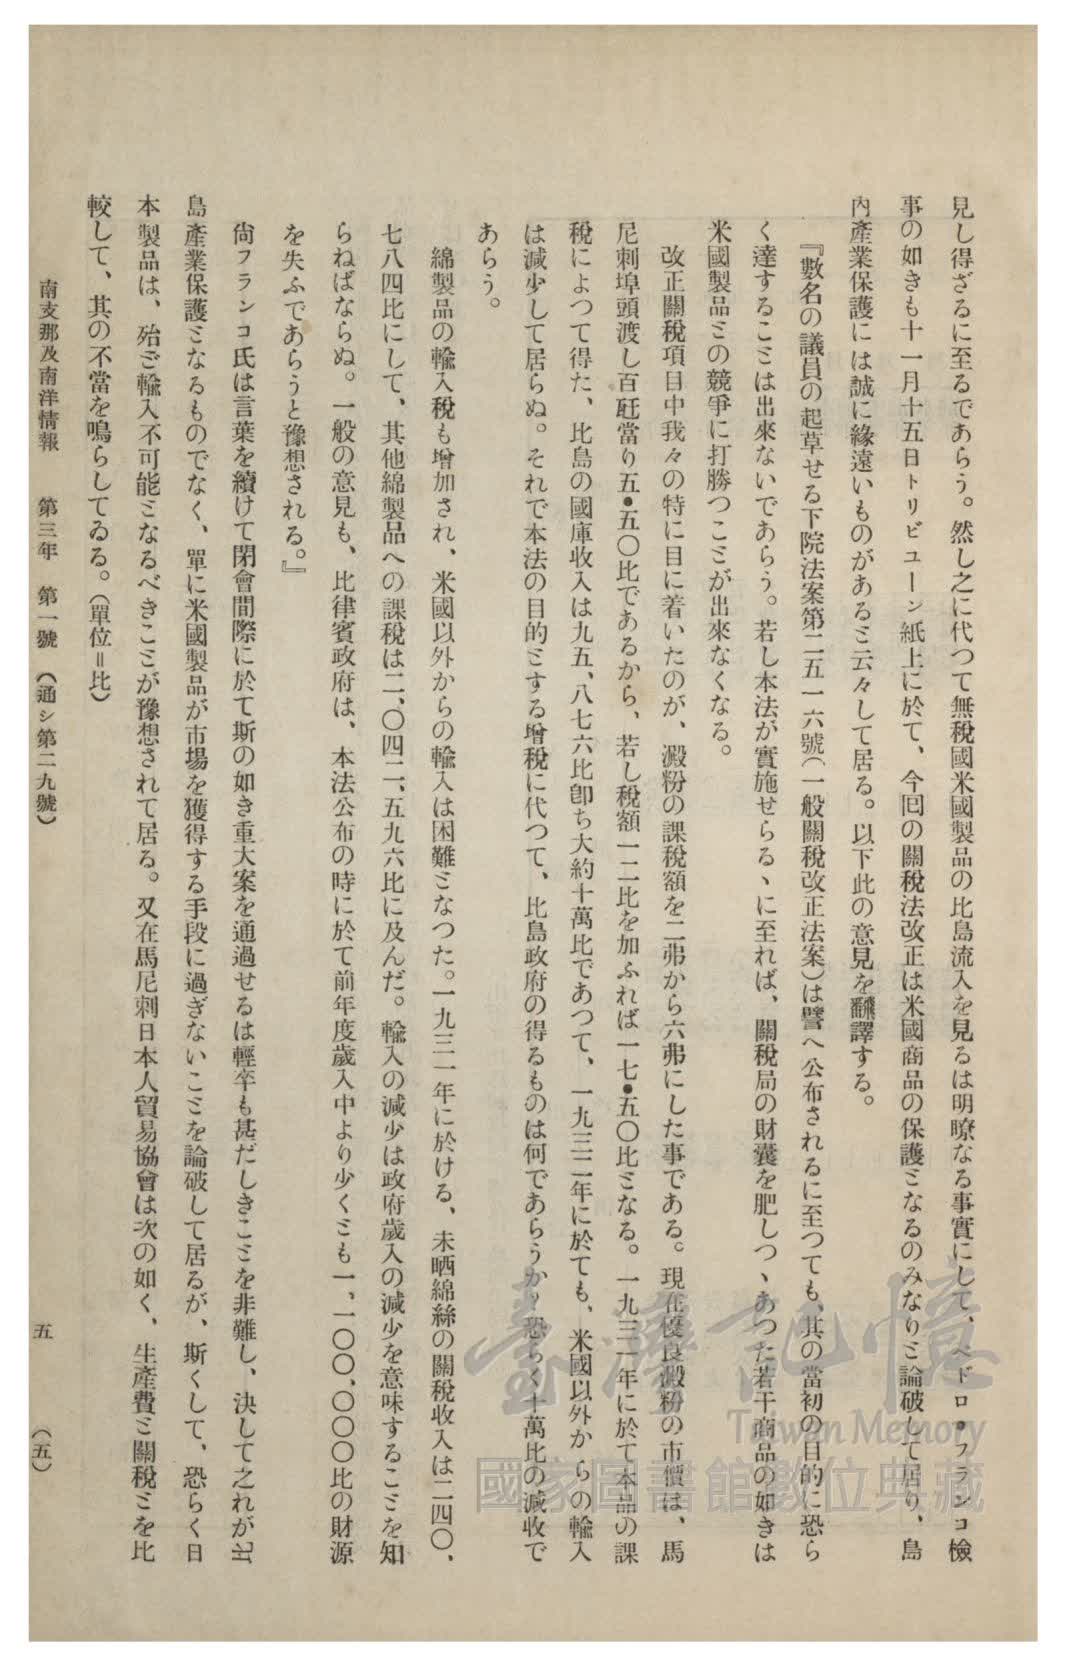 見し得ざるに至るであらう。然し之に代つて無稅國米國製品の比島流入を見るは明瞭なる事實にして、ペドロ•フランコ檢
事の如きも十一月十五日トリビユーン紙上に於て、今囘の關稅法改正は米國商品の保護となるのみなりと論破して居り、島
內產業保護には誠に緣遠いものがあると云々して居る。以下此の意見を飜譯する。
『數名の議員の起草せる下院法案第二五一六號(一般關稅改正法案)は譬へ公布されるに至つても、其の當初の目的に恐ら
く達することは出來ないであらう。若し本法が實施せらるゝに至れば、關稅局の財囊を肥しつゝあつた若干商品の如きは
米國製品との競爭に打勝つことが出來なくなる。
改正關稅項目中我々の特に目に着いたのが、澱粉の課稅額を二弗から六弗にした事である。現在優良澱粉の市價は、馬
尼剌埠頭渡し百瓩當り五•五〇比であるから、若し稅額一二比を加ふれば一七•五〇比となる。一九三一年に於て本品の課
稅によつて得た、比島の國庫收入は九五、八七六比卽ち大約十萬比であつて、一九三二年に於ても、米國以外からの輸入
は減少して居らぬ。それで本法の目的とする增稅に代つて、比島政府の得るものは何であらうか?恐らく十萬比の減收で
あらう。
綿製品の輸入稅も增加され、米國以外からの輸入は困難となつた。一九三一年に於ける、未晒綿絲の關稅收入は二四〇、
七八四比にして、其他綿製品への課稅は二、〇四二、五九六比に及んだ。輸入の減少は政府歲入の減少を意味することを知
らねばならぬ。一般の意見も、比律賓政府は、本法公布の時に於て前年度歲入中より少くとも一、一〇〇、〇〇〇比の財源
を失ふであらうと豫想される。』
尙フランコ氏は言葉を續けて閉會間際に於て斯の如き重大案を通過せるは輕卒も甚だしきことを非難し、決して之れが比
島產業保護となるものでなく、單に米國製品が市場を獲得する手段に過ぎないことを論破して居るが、斯くして、恐らく日
本製品は、殆ど輸入不可能となるべきことが豫想されて居る。又在馬尼剌日本人貿易協會は次の如く、生產費と關稅とを比
較して、其の不當を鳴らしてゐる。(單位=比)
南支那及南洋情報　第三年　第一號　(通シ第二九號)　五　(五)
臺灣記憶
Taiwan Memory
國家圖書館數位典藏